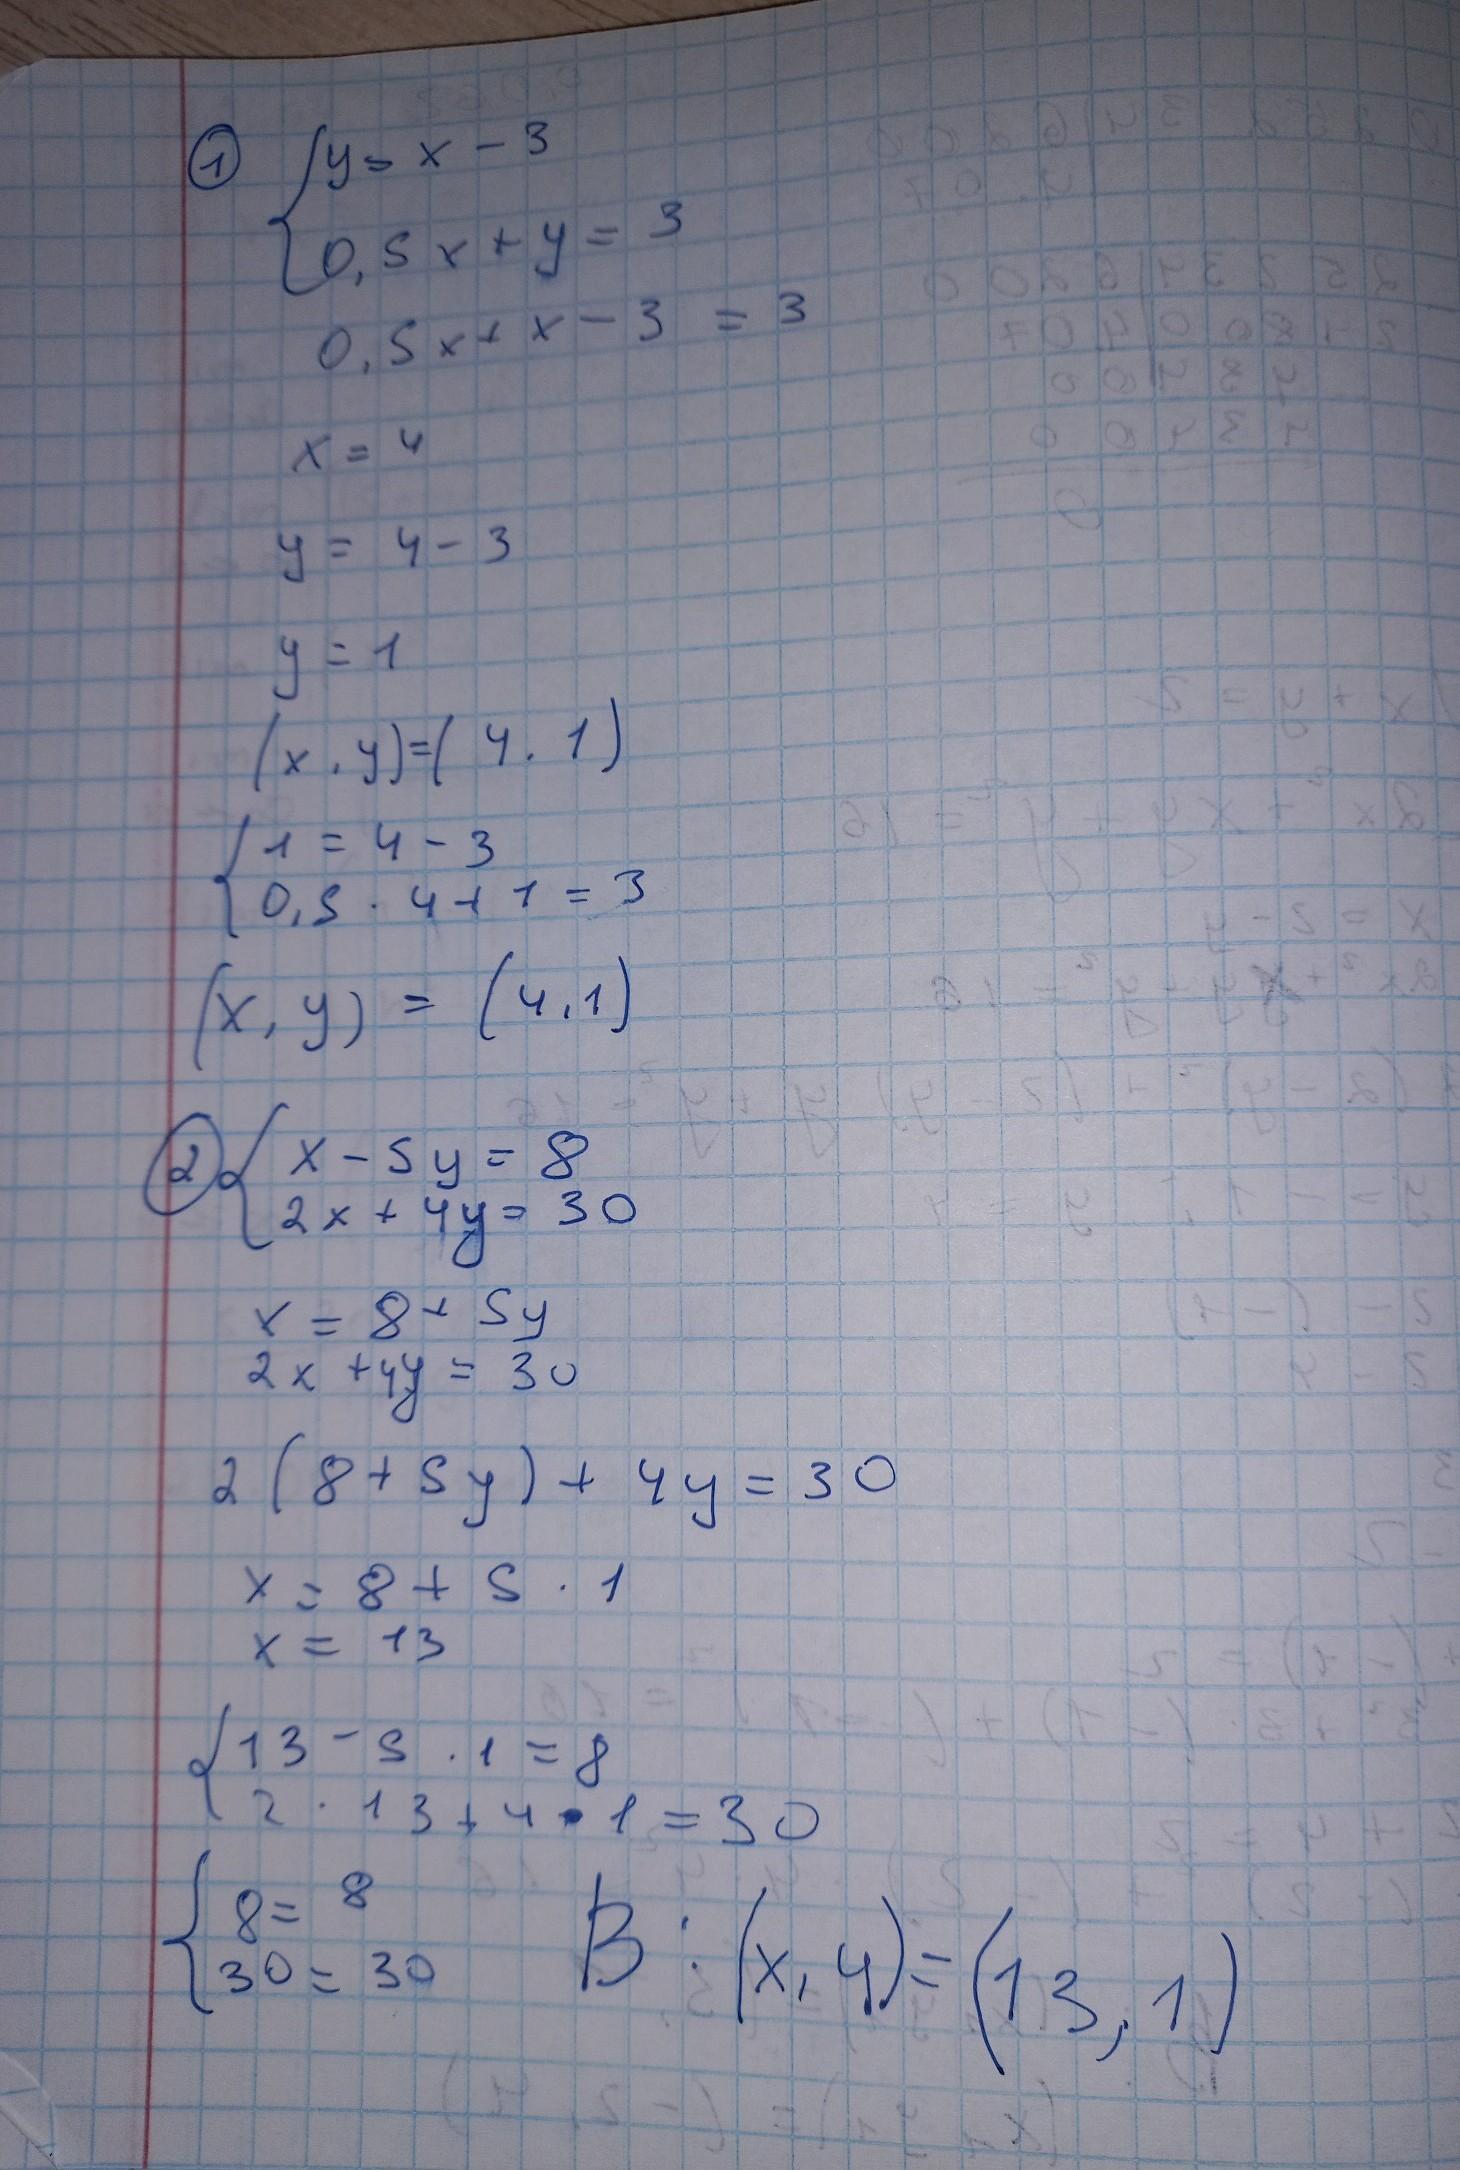 1 { y = x - 3
0,5x + y = 3
0,5x + x - 3 = 3
x = 4
y = 4 - 3
y = 1
(x, y) = (4, 1)
{ 1 = 4 - 3
0,5 · 4 + 1 = 3
(x, y) = (4, 1)
2 { x - 5y = 8
2x + 4y = 30
x = 8 + 5y
2x + 4y = 30
2(8 + 5y) + 4y = 30
x = 8 + 5 · 1
x = 13
{ 13 - 5 · 1 = 8
2 · 13 + 4 · 1 = 30
{ 8 = 8
30 = 30
В : (x, y) = (13, 1)